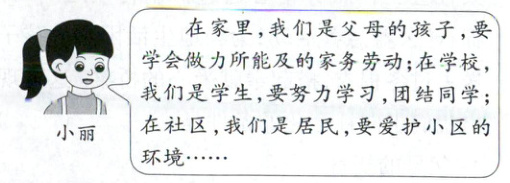 在家里，我们是父母的孩子，要
学会做力所能及的家务劳动；在学校，
我们是学生，要努力学习，团结同学；
在社区，我们是居民，要爱护小区的
环境……
小丽